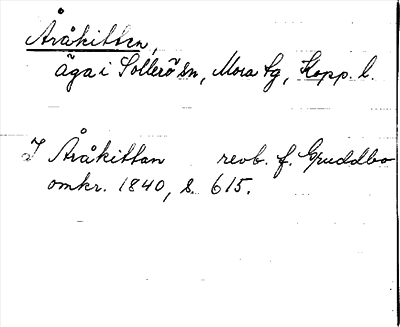 Åråkitten,
äga i Sollerö sn, Mora tg, Kopp. l.
I Åråkittan revb. f. Gruddbo
omkr. 1840, s. 615.